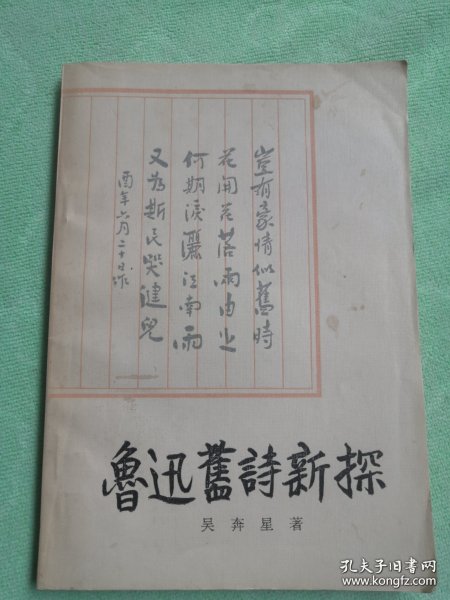 豈有豪情似舊時
花開花落兩由之
何期淚灑江南雨
又為斯民哭健兒
酉年六月二十日作
魯迅舊詩新探
吴奔星著
孔夫子旧书网
www.kongfz.com